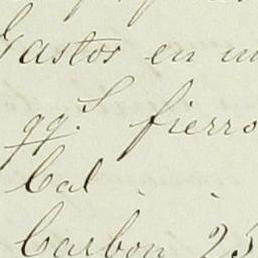 Gastos en
qq.s fierro
Cal . .
Carbon 25